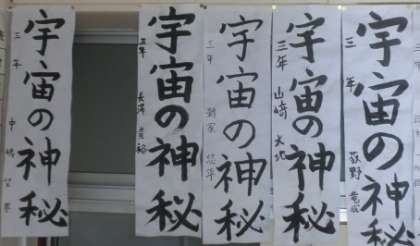 宇宙の神秘
三年
宇宙の神秘
三年
宇宙の神秘
三年
宇宙の神秘
三年 山﨑 大北
宇宙の神秘
三年 荻野 竜成